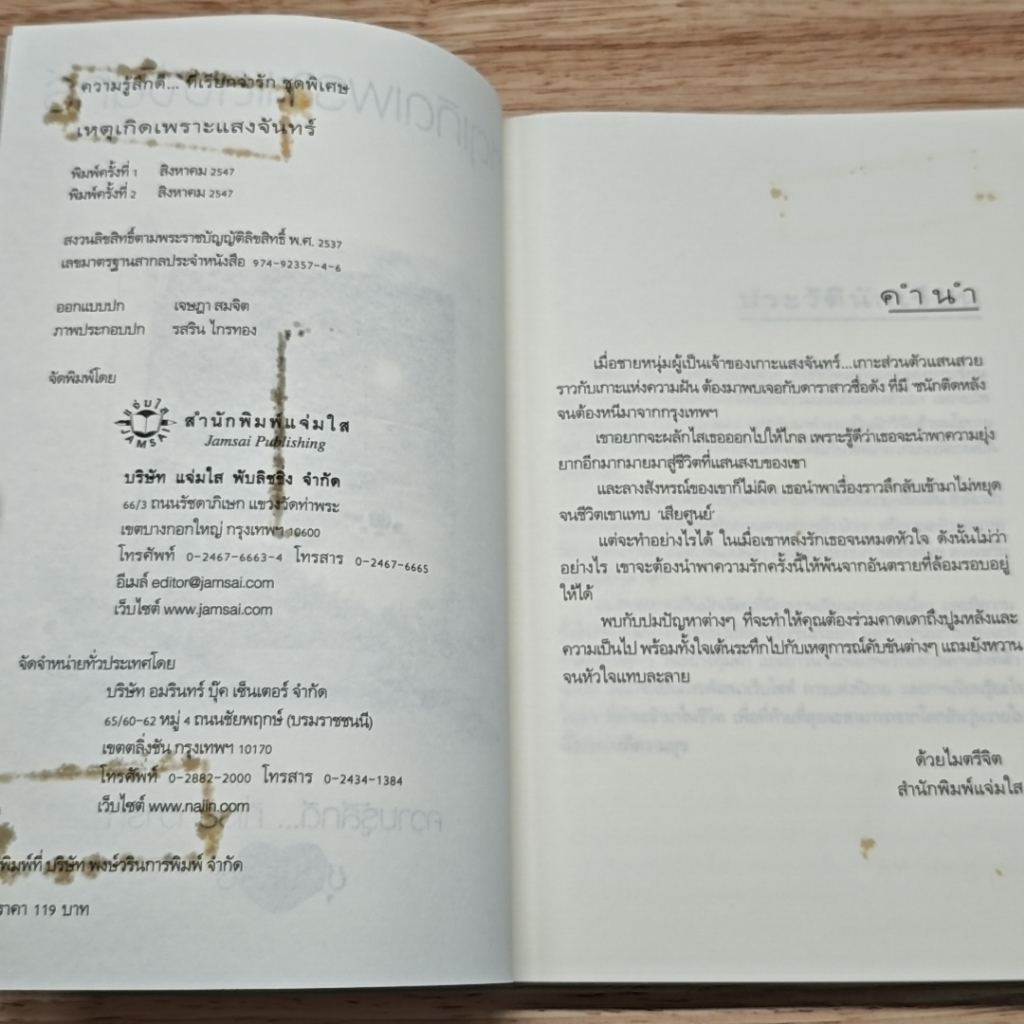 ความรู้สึกดี... ที่เรียกว่ารัก ชุดพิเศษ
เหตุเกิดเพราะแสงจันทร์
พิมพ์ครั้งที่ 1 สิงหาคม 2547
พิมพ์ครั้งที่ 2 สิงหาคม 2547
สงวนลิขสิทธิ์ตามพระราชบัญญัติลิขสิทธิ์ พ.ศ. 2537
เลขมาตรฐานสากลประจำหนังสือ 974-92357-4-6
ออกแบบปก เจษฎา สมจิต
ภาพประกอบปก รสริน ไกรทอง
จัดพิมพ์โดย
แจ่มใส
JAMSAI
สำนักพิมพ์แจ่มใส
Jamsai Publishing
บริษัท แจ่มใส พับลิชชิง จำกัด
66/3 ถนนรัชดาภิเษก แขวงวัดท่าพระ
เขตบางกอกใหญ่ กรุงเทพฯ 10600
โทรศัพท์ 0-2467-6663-4 โทรสาร 0-2467-6665
อีเมล์ editor@jamsai.com
เว็บไซต์ www.jamsai.com
จัดจำหน่ายทั่วประเทศโดย
บริษัท อมรินทร์ บุ๊ค เซ็นเตอร์ จำกัด
65/60-62 หมู่ 4 ถนนชัยพฤกษ์ (บรมราชชนนี)
เขตตลิ่งชัน กรุงเทพฯ 10170
โทรศัพท์ 0-2882-2000 โทรสาร 0-2434-1384
เว็บไซต์ www.naiin.com
พิมพ์ที่ บริษัท พงษ์วรินการพิมพ์ จำกัด
ราคา 119 บาท
คำนำ
เมื่อชายหนุ่มผู้เป็นเจ้าของเกาะแสงจันทร์...เกาะส่วนตัวแสนสวย
ราวกับเกาะแห่งความฝัน ต้องมาพบเจอกับดาราสาวชื่อดัง ที่มี 'ชนักติดหลัง
จนต้องหนีมาจากกรุงเทพฯ
เขาอยากจะผลักไสเธอออกไปให้ไกล เพราะรู้ดีว่าเธอจะนำพาความยุ่ง
ยากอีกมากมายมาสู่ชีวิตที่แสนสงบของเขา
และลางสังหรณ์ของเขาก็ไม่ผิด เธอนำพาเรื่องราวลึกลับเข้ามาไม่หยุด
จนชีวิตเขาแทบ 'เสียศูนย์'
แต่จะทำอย่างไรได้ ในเมื่อเขาหลงรักเธอจนหมดหัวใจ ดังนั้นไม่ว่า
อย่างไร เขาจะต้องนำพาความรักครั้งนี้ให้พ้นจากอันตรายที่ล้อมรอบอยู่
ให้ได้
พบกับปมปัญหาต่างๆ ที่จะทำให้คุณต้องร่วมคาดเดาถึงปูมหลังและ
ความเป็นไป พร้อมทั้งใจเต้นระทึกไปกับเหตุการณ์คับขันต่างๆ แถมยังหวาน
จนหัวใจแทบละลาย
ด้วยไมตรีจิต
สำนักพิมพ์แจ่มใส